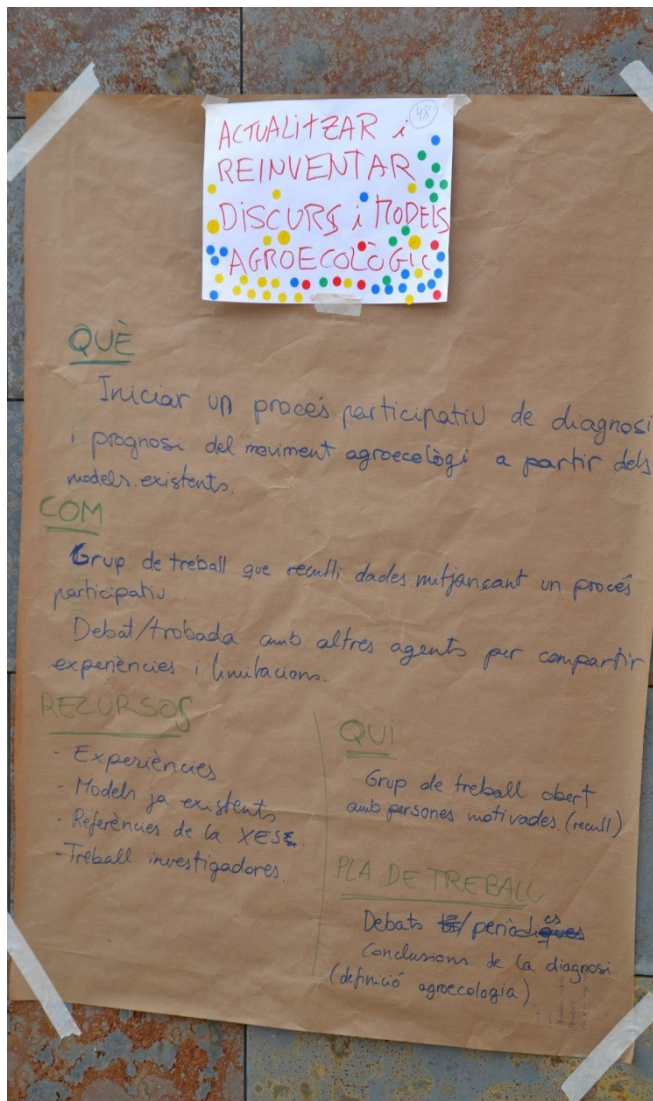 48
ACTUALITZAR i
REINVENTAR
DISCURS i MODELS
AGROECOLÒGIC
QUÈ
Iniciar un procés participatiu de diagnosi
i prognosi del moviment agroecològi a partir dels
models existents.
COM
Grup de treball que reculli dades mitjançant un procés
participatiu
Debat/trobada amb altres agents per compartir
experiències i limitacions.
RECURSOS
- Experiències
- Models ja existents
- Referències de la XESC.
- Treball investigadores.
QUI
Grup de treball obert
amb persones motivades. (recull)
PLA DE TREBALL
Debats periòdics
Conclusions de la diagnosi
(definició agroecologia)